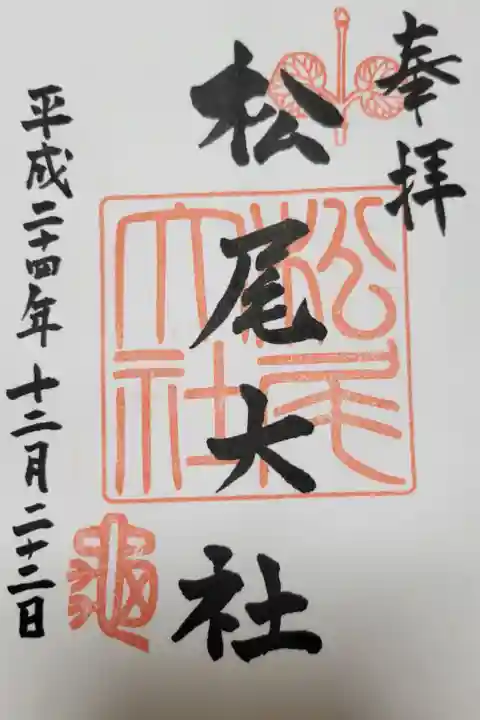 奉拝
松尾大社
松尾大社
平成二十四年十二月二十三日
亀